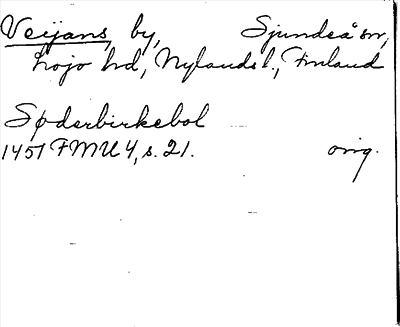 Veijans, by, Sjundeå sn,
Lojo hd, Nylands l., Finland
Søderbirkebol
1451 FMU 4, s. 21. orig.